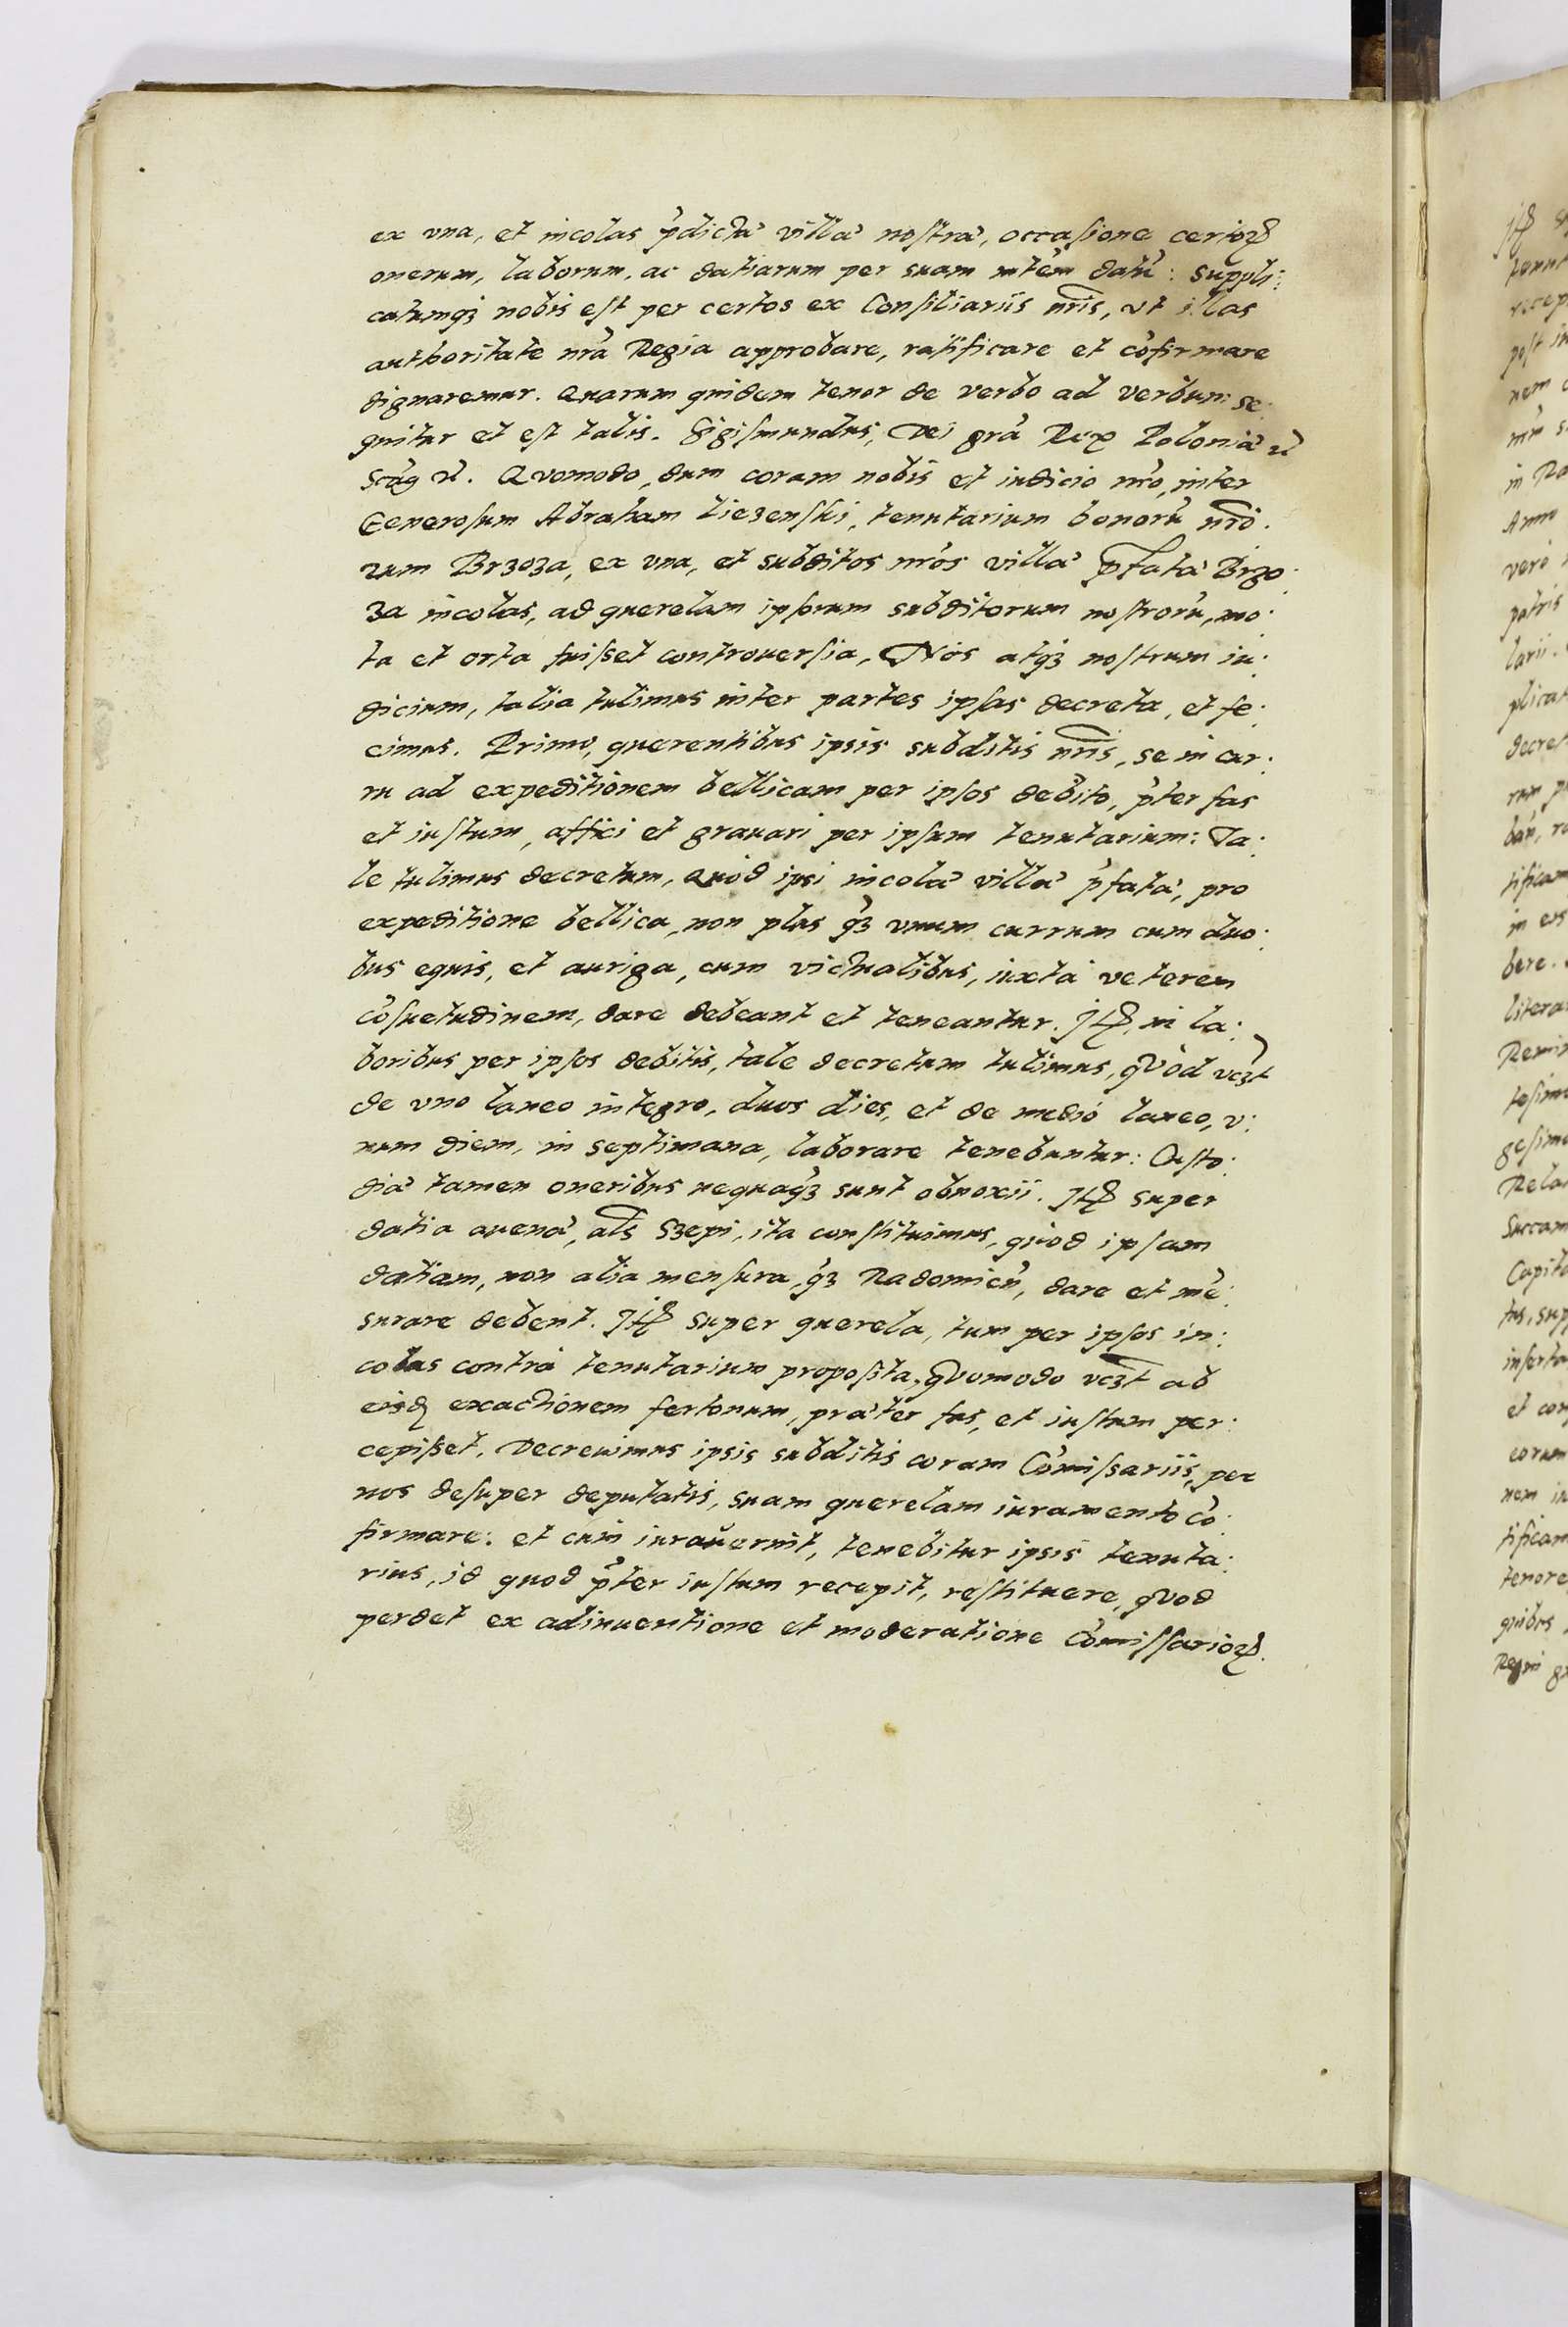 ex vna, et incolas p̃dictæ villæ nostræ, occasione certoꝝ
onerum, laborum, ac datiarum per suam mtẽm datũ: suppli:
catumqꝫ nobis est per certos ex Consiliariis nr̃is, vt illas
authoritate nr̃a Regia approbare, ratificare et cõfirmare
dignaremur. Quarum quidem tenor de verbo ad verbum se:
quitur et est talis. Sigismundus, Dei grã Rex Poloniæ ꝛc̃
Quomodo, dum coram nobis et iudicio nr̃o, inter
Generosum Abraham Liezenski, tenutarium bonorũ nr̃o:
rum Brzoza, ex vna, et subditos nr̃os villæ p̃fatæ Brzo:
za incolas, ad querelam ipsorum subditorum nostrorũ, mo:
ta et orta fuisset controuersia, Nos atqꝫ nostrum iu:
dicium, talia tulimus inter partes ipsas decreta, et fe:
cimus. Primo, querentibus ipsis subditis nr̃is, se in cur:
ru ad expeditionem bellicam per ipsos debito, p̃ter fas
et iustum, affici et grauari per ipsum tenutarium: Ta:
le tulimus decretum, Quòd ipsi incolæ villæ p̃fatæ, pro
expeditione bellica, non plus q̃ꝫ vnum currum cum duo:
bus equis, et auriga, cum victualibus, iuxta veterem
cõsuetudinem, dare debeant et teneantur. Itꝫ in la:
boribus per ipsos debitis, tale decretum tulimus, quòd vcꝫt
de vno laneo integro, duos dies, et de medio laneo, v:
num diem, in septimana, laborare tenebuntur: Custo:
diæ tamen oneribus nequaq̃ꝫ sunt obnoxii. Itꝫ super
datia auenæ, al̃s Szepi, ita constituimus, quòd ipsam
datiam, non alia mensura, q̃ꝫ Radomieñ, dare et mẽ:
surare debent. Itꝫ super querela, tum per ipsos in:
colas contra tenutarium proposita, Quomodo vcꝫt ab
eisdꝫ exactionem fertonum, præter fas, et iustum per:
cepisset, Decreuimus ipsis subditis coram Cõmissariis, per
nos desuper deputatis, suam querelam iuramento cõ:
firmare: et cum iurauerint, tenebitur ipsis tenuta:
rius, id quod p̃ter iustum recepit, restituere, quod
perdet ex adinuentione et moderatione Cõmissarioꝝ.